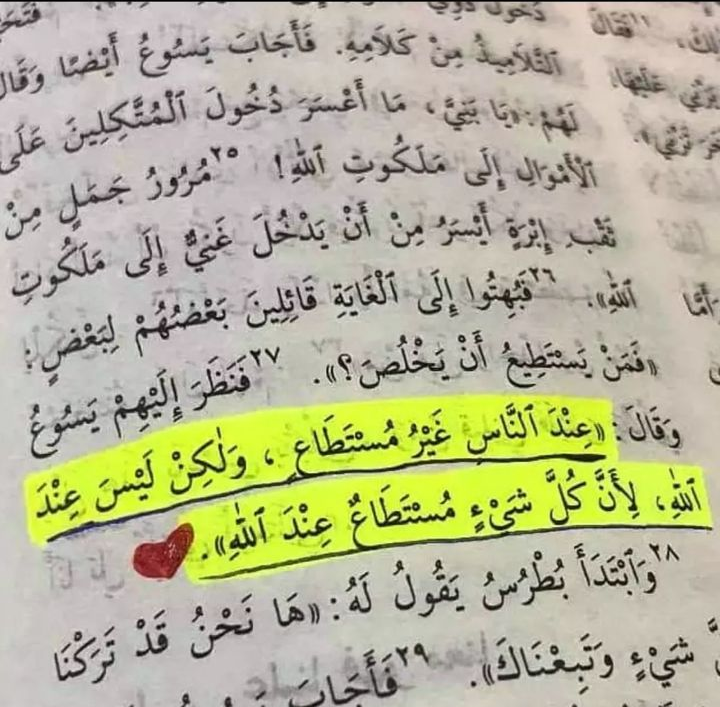 دخول ذوي
التَّلَامِيذُ مِنْ كَلَامِهِ. فَأَجَابَ يَسُوعُ أَيْضًا وَقَالَ
لَهُمْ: «يَا بَنِيَّ، مَا أَعْسَرَ دُخُولَ ٱلْمُتَّكِلِينَ عَلَى
ٱلْأَمْوَالِ إِلَى مَلَكُوتِ ٱللهِ! ٢٥مُرُورُ جَمَلٍ مِنْ
ثَقْبِ إِبْرَةٍ أَيْسَرُ مِنْ أَنْ يَدْخُلَ غَنِيٌّ إِلَى مَلَكُوتِ
ٱللهِ». ٢٦فَبُهِتُوا إِلَى ٱلْغَايَةِ قَائِلِينَ بَعْضُهُمْ لِبَعْضٍ:
«فَمَنْ يَسْتَطِيعُ أَنْ يَخْلُصَ؟». ٢٧فَنَظَرَ إِلَيْهِمْ يَسُوعُ
وَقَالَ: «عِنْدَ ٱلنَّاسِ غَيْرُ مُسْتَطَاعٍ، وَلَٰكِنْ لَيْسَ عِنْدَ
ٱللهِ، لِأَنَّ كُلَّ شَيْءٍ مُسْتَطَاعٌ عِنْدَ ٱللهِ».
٢٨وَٱبْتَدَأَ بُطْرُسُ يَقُولُ لَهُ: «هَا نَحْنُ قَدْ تَرَكْنَا
شَيْءٍ وَتَبِعْنَاكَ». ٢٩فَأَجَابَ